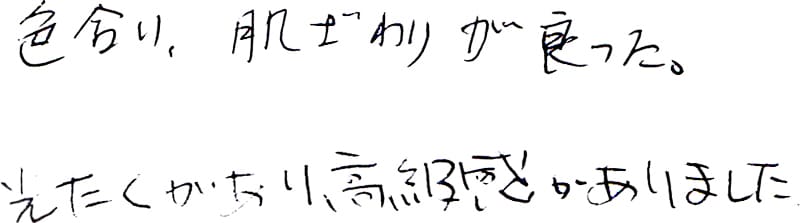 色合い、肌ざわりが良った。
光たくがあり、高級感がありました